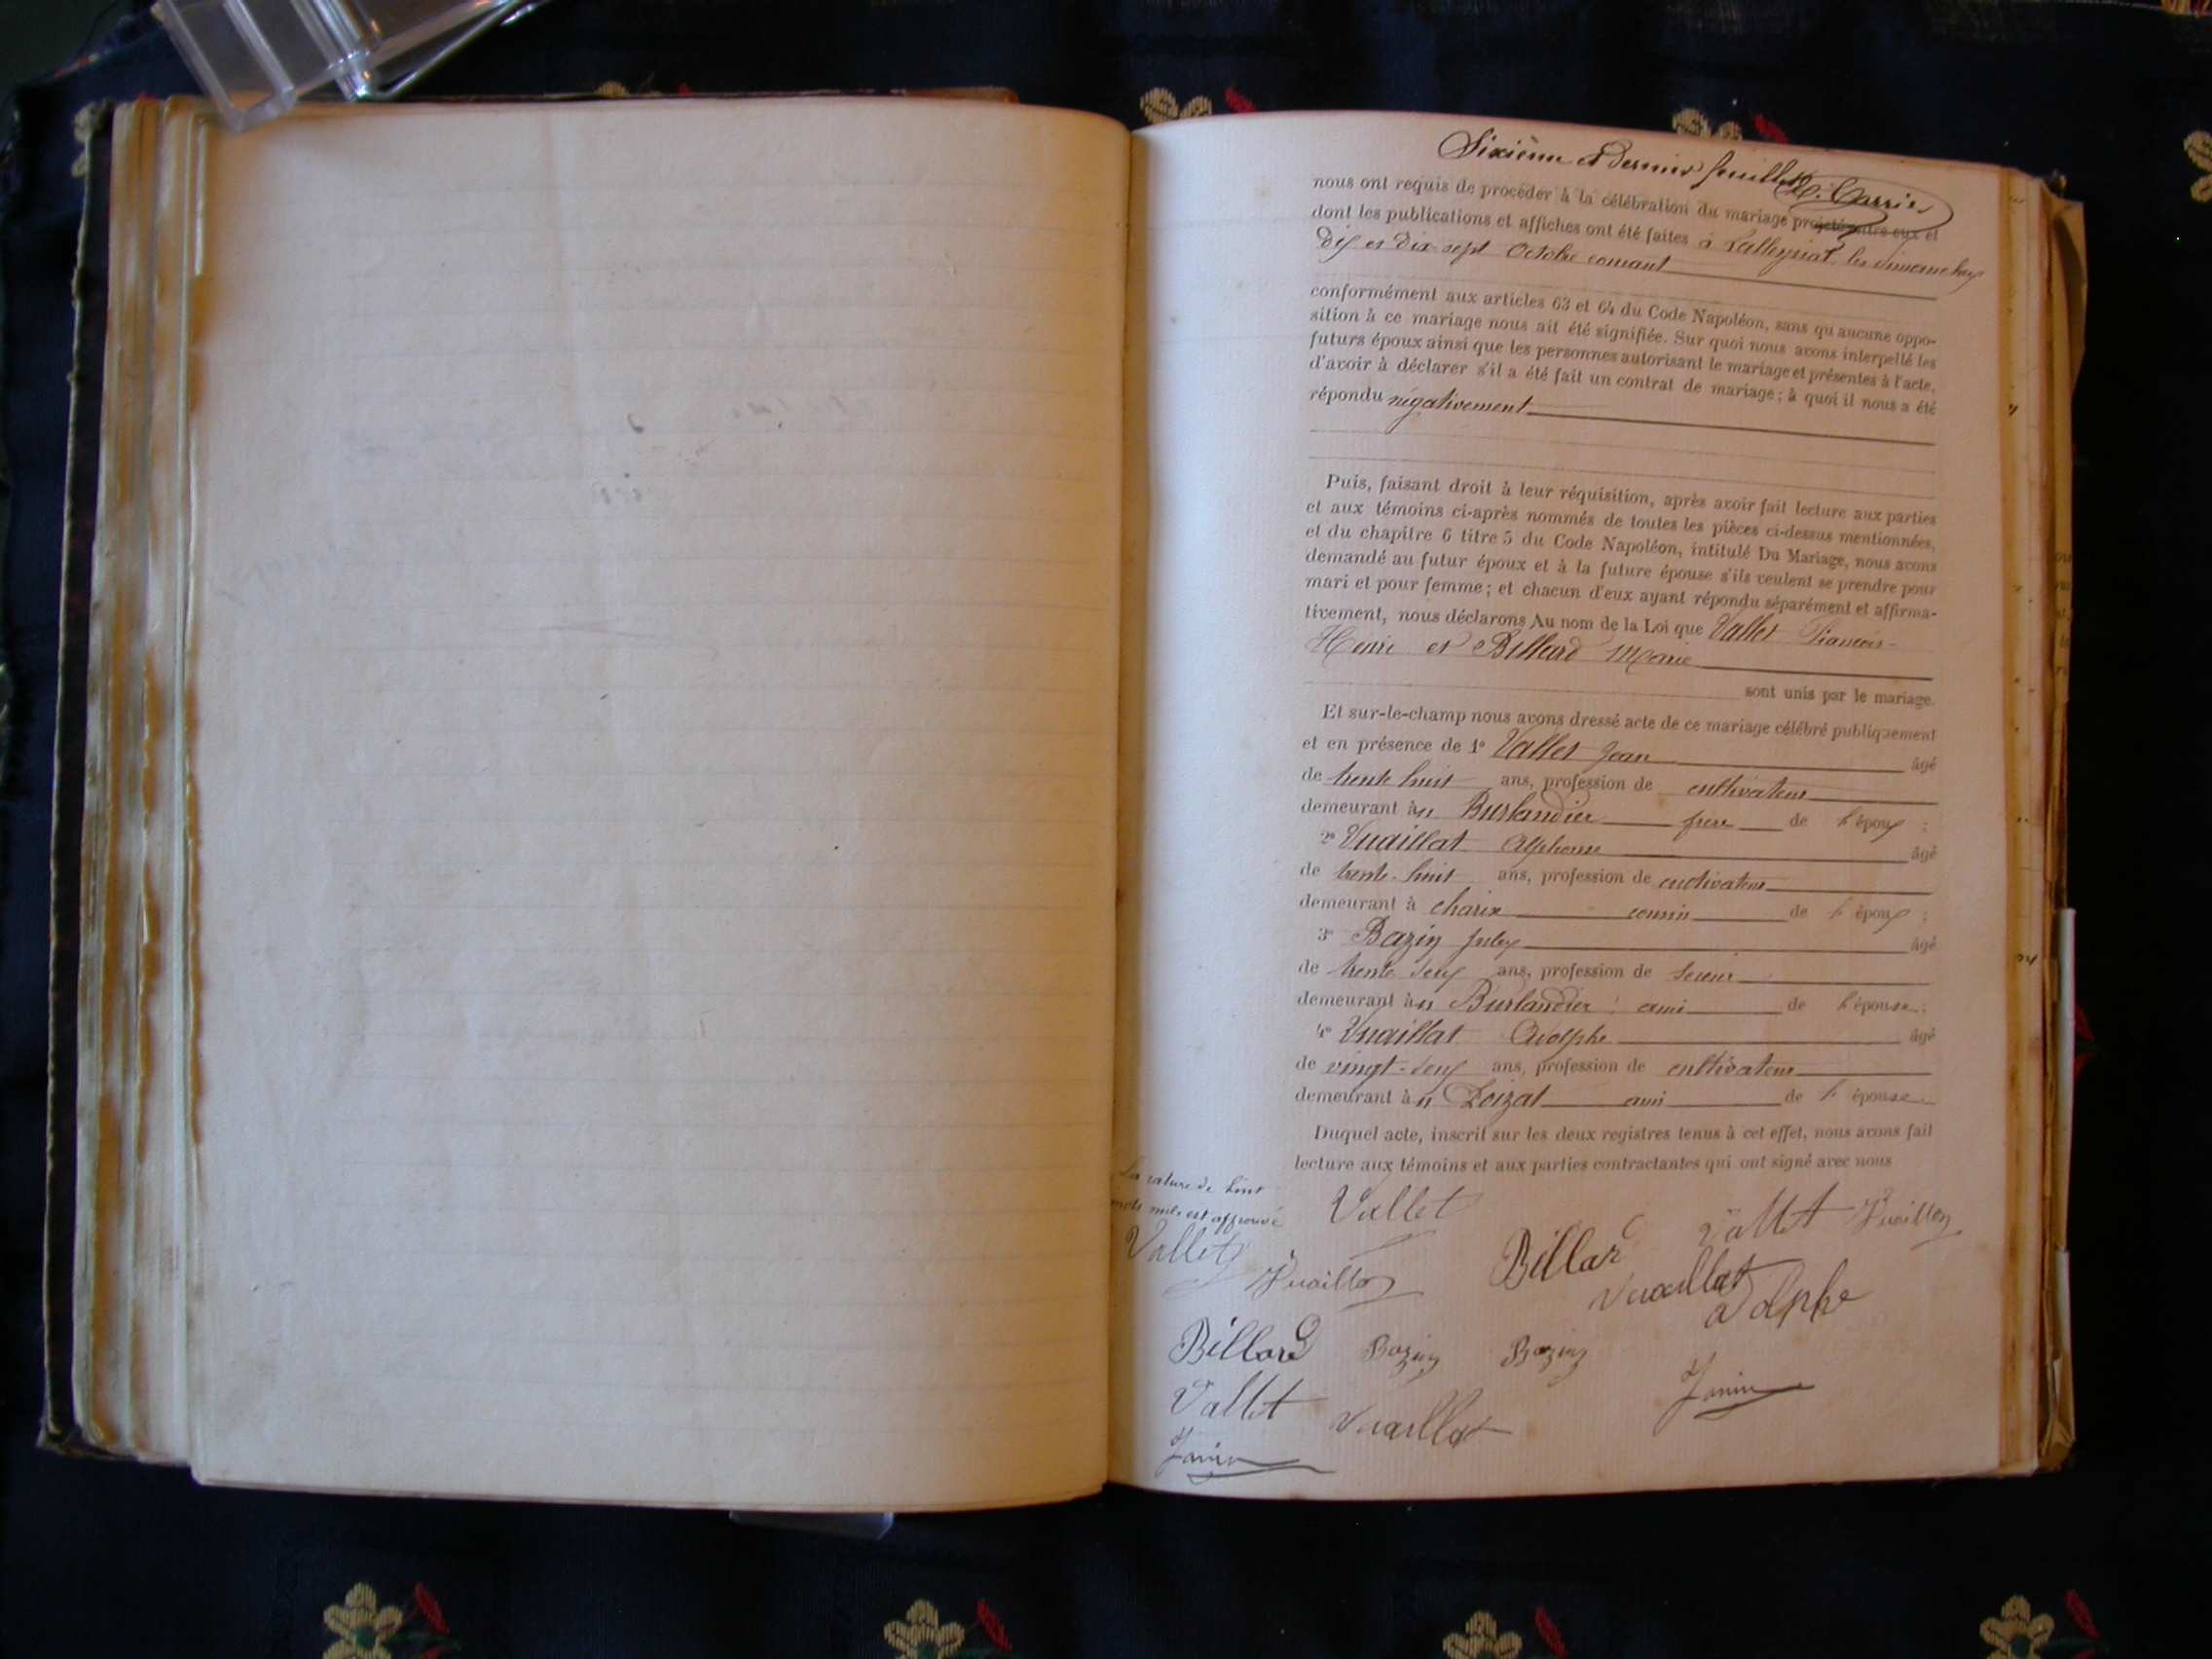 Sixième et dernier feuillet
nous ont requis de procéder à la célébration du mariage projeté entre eux et
dont les publications et affiches ont été faites à Lalleyriat les dimanches
dix et dix-sept Octobre courant
conformément aux articles 63 et 64 du Code Napoléon, sans qu'aucune oppo-
sition à ce mariage nous ait été signifiée. Sur quoi nous avons interpellé les
futurs époux ainsi que les personnes autorisant le mariage et présentes à l'acte,
d'avoir à déclarer s'il a été fait un contrat de mariage ; à quoi il nous a été
répondu négativement
Puis, faisant droit à leur réquisition, après avoir fait lecture aux parties
et aux témoins ci-après nommés de toutes les pièces ci-dessus mentionnées,
et du chapitre 6 titre 5 du Code Napoléon, intitulé Du Mariage, nous avons
demandé au futur époux et à la future épouse s'ils veulent se prendre pour
mari et pour femme ; et chacun d'eux ayant répondu séparément et affirma-
tivement, nous déclarons Au nom de la Loi que Vallet François-
Henri et Billard Marie
sont unis par le mariage.
Et sur-le-champ nous avons dressé acte de ce mariage célébré publiquement
et en présence de 1° Vallet Jean âgé
de trente huit ans, profession de cultivateur
demeurant à Burlandier frere de l'époux ;
2° Vuaillat Alphonse âgé
de trente-huit ans, profession de cultivateur
demeurant à charix cousin de l'époux ;
3° Bazin Jules âgé
de trente deux ans, profession de scieur
demeurant à Burlandier ami de l'épouse ;
4° Vuaillat Adolphe âgé
de vingt-deux ans, profession de cultivateur
demeurant à Loizat ami de l'épouse
Duquel acte, inscrit sur les deux registres tenus à cet effet, nous avons fait
lecture aux témoins et aux parties contractantes qui ont signé avec nous
La rature de huit
mots nuls est approuvé
Vallet
Vallet
Billard
Vallet
Vuaillat
adolphe
Billard
Bazin
Bazin
Janin
Vallet
Vuaillat
Janin